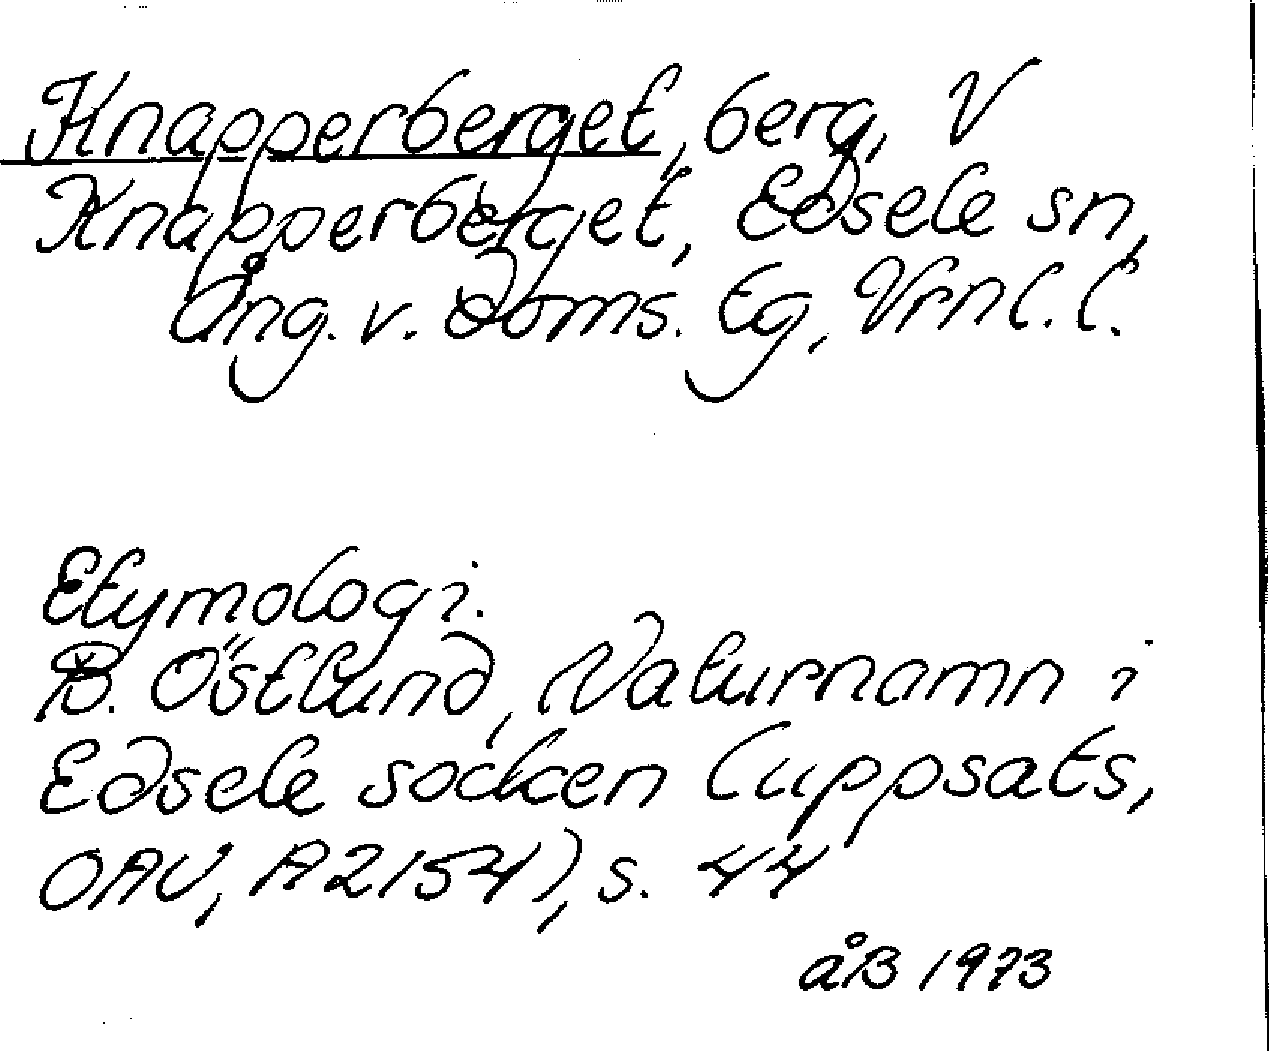 Knapperberget, berg, V
Knapperberget, Edsele sn,
Ång. v. doms. tg, Vrnl. l.
Etymologi.
B. Östlund, Naturnamn i
Edsele socken (uppsats,
OAU, A2154), s. 44
åB 1973